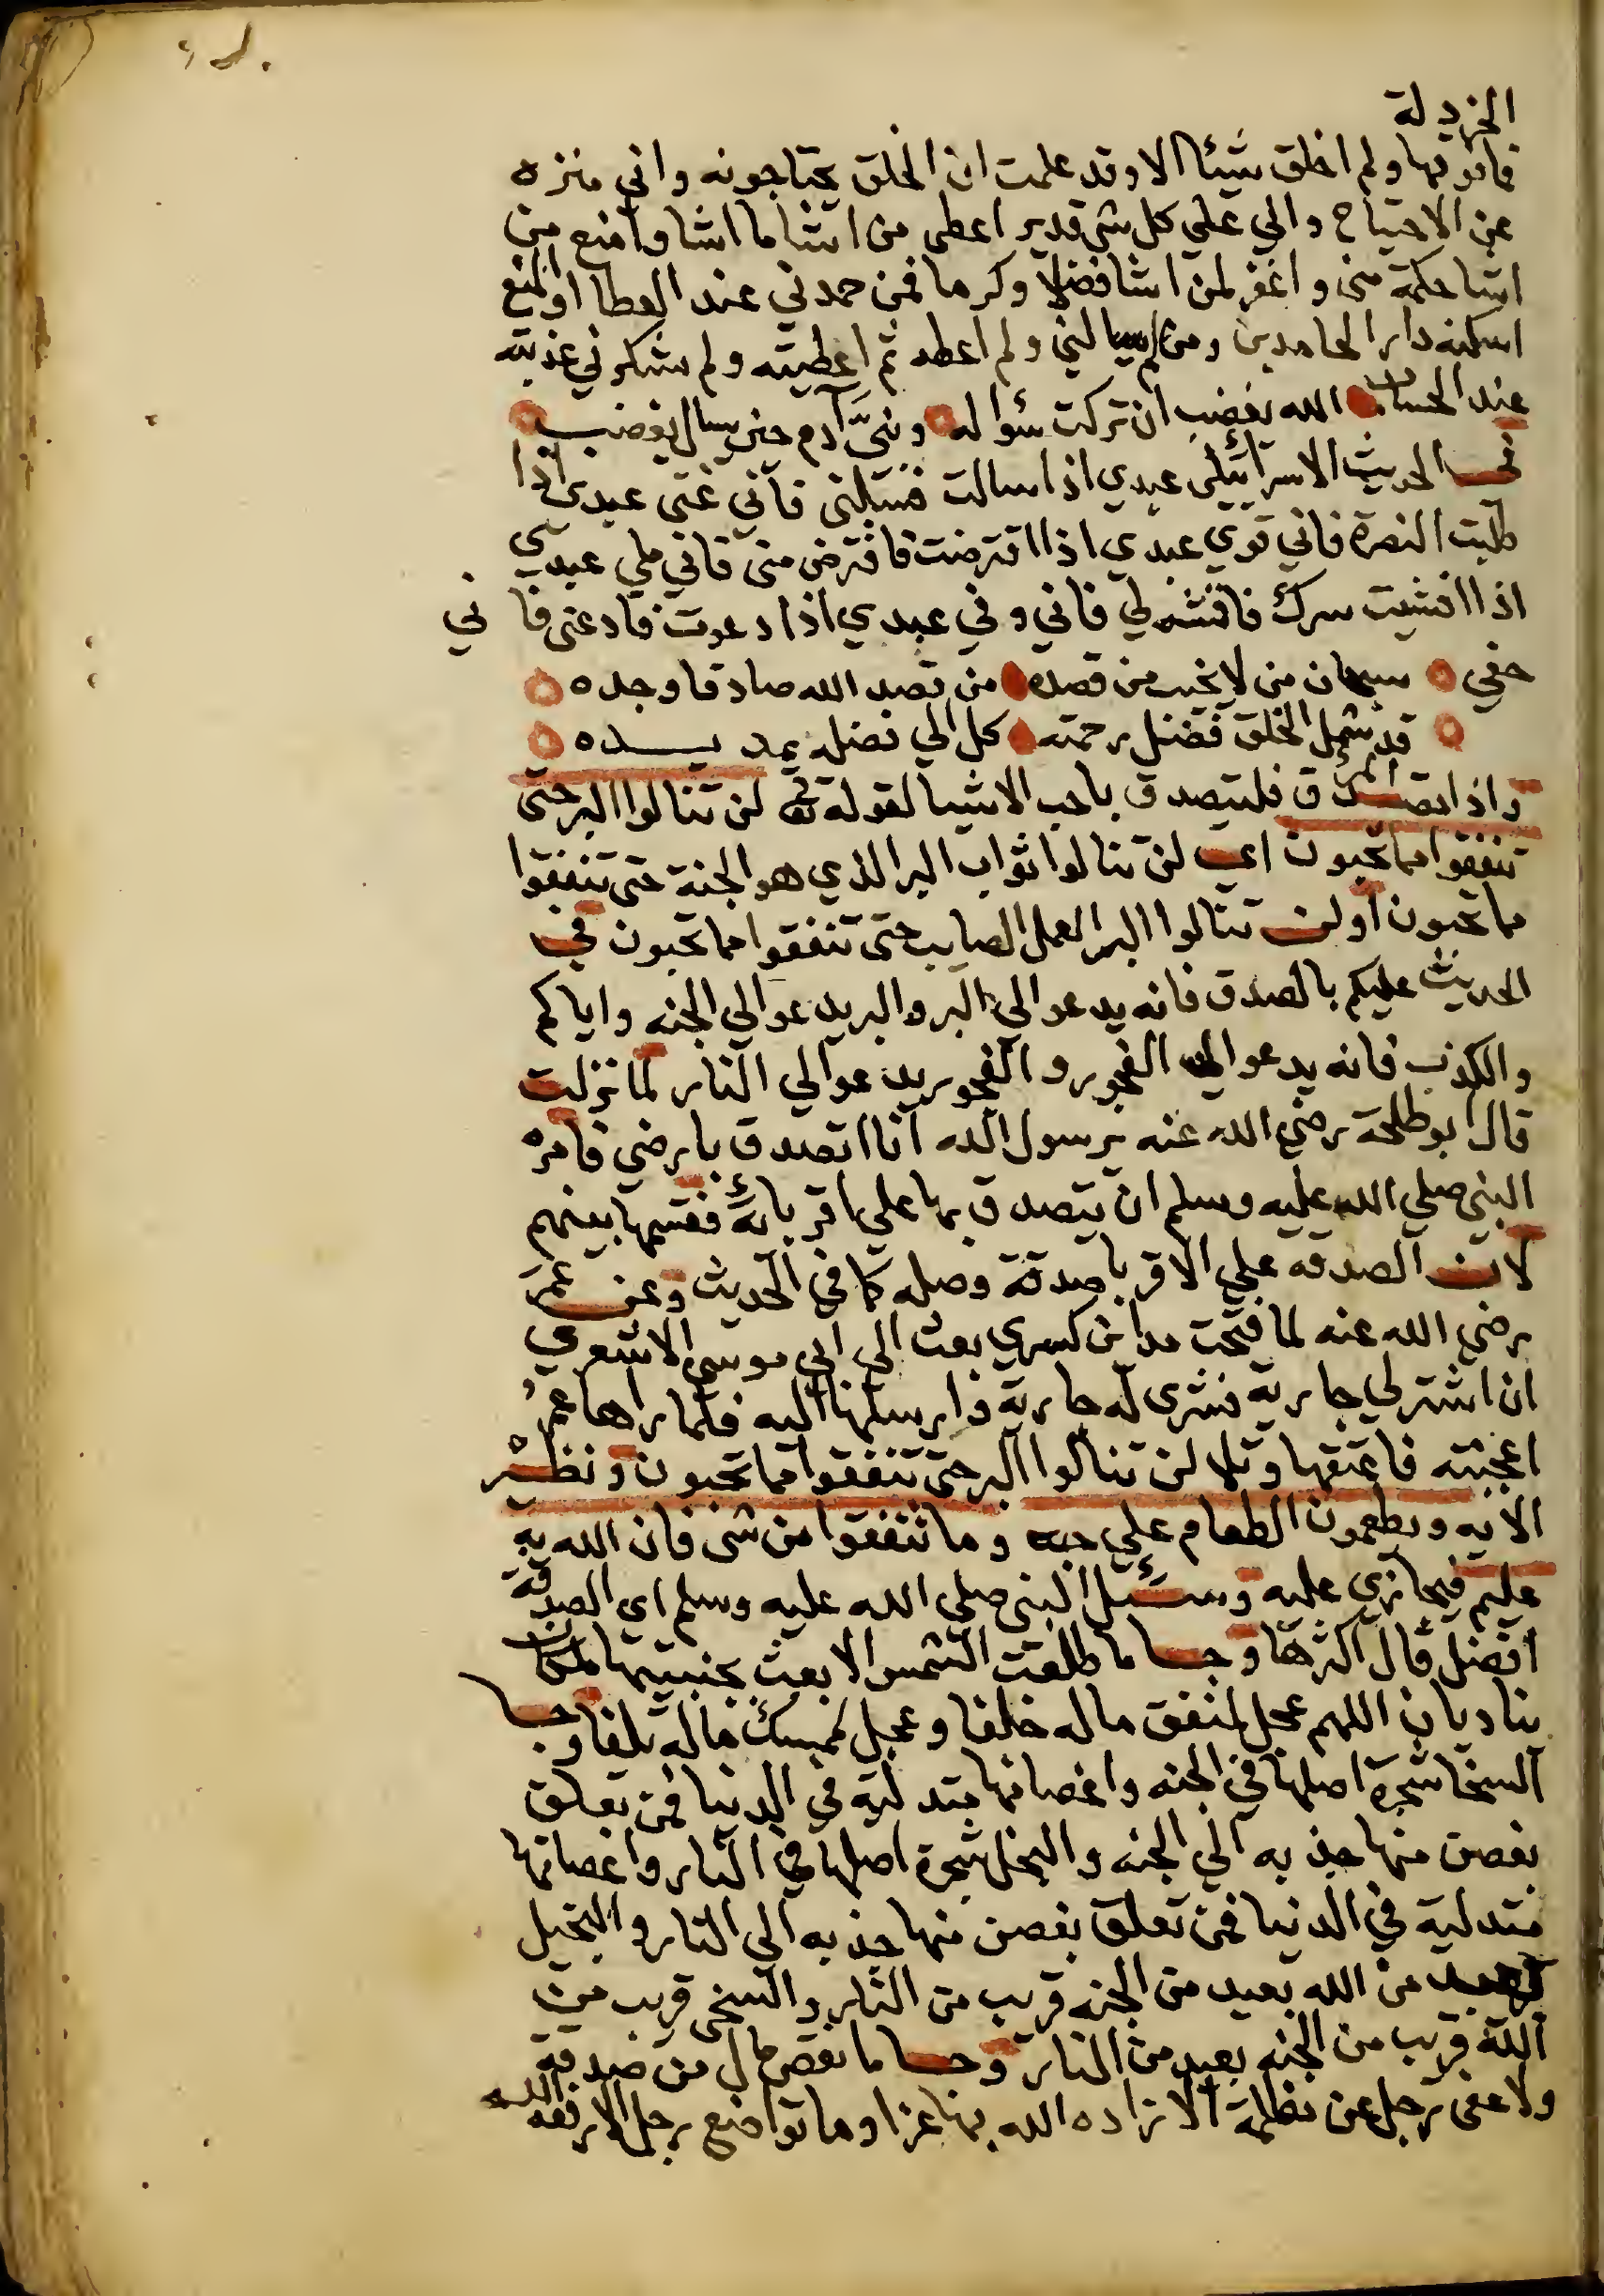 الخردلة
فما فوقها ولم اخلق شيئا الا وقد علمت ان الخلق يحتاجونه واني منزه
عن الاحتياج واني علي كل شي قدير اعطي من اشا ما اشا وامنع من
اشا حكمة مني واغفر لمن اشا فضلا وكرما فمن حمدني عند العطا او المنع
اسكنته دار الحامدين ومن لم يسالني ولم اعطه ثم اعطيته ولم يشكرني عذبته
عند الحساب الله يغضب ان تركت سؤاله وبنيَّ آدم حين يسال يغضب
في الحديث الاسرائيلي عبدي اذا سالت فسئلني فاني غني عبدي اذا
طلبت النصرة فاني قوي عبدي اذا اقترضت فاقترض مني فاني ملي عبدي
اذا افشيت سرك فافشه لي فاني وفي عبدي اذا دعوت فادعني فاني
حفي سبحان من لا يخيب من قصده من قصد الله صادقا وجده
قد شمل الخلق فضل رحمته كل الي فضله يمد يده
واذا تصدق المرء فليتصدق باحب الاشيا لقوله تع لن تنالوا البر حتى
تنفقوا مما تحبون اي لن تنالوا ثواب البر الذي هو الجنة حتى تنفقوا
مما تحبون او لن تنالوا البر العمل الصايب حتى تنفقوا مما تحبون في
الحديث عليكم بالصدق فانه يدعو الي البر والبر يدعو الي الجنه واياكم
والكذب فانه يدعو الي الفجور والفجور يدعو الي النار لما نزلت
قال ابو طلحة رضي الله عنه يرسول الله انا اتصدق بارضي فامره
النبي صلي الله عليه وسلم ان يتصدق بها علي اقربائه فقسمها بينهم
لان الصدقه علي الاقربا صدقة وصله كما في الحديث وعن عمر
رضي الله عنه لما فتحت مداين كسري بعث الي ابي موسي الاشعري
ان اشتر لي جارية فشري له جارية وارسلها اليه فلما راها عمر
اعجبته فاعتقها وتلا لن تنالوا البر حتى تنفقوا مما تحبون ونظير
الايه ويطعمون الطعام علي حبه وما تنفقوا من شي فان الله به
عليم فيجازي عليه وسئل النبي صلي الله عليه وسلم اي الصدقة
افضل قال اكثرها وجا ما طلعت الشمس الا بعث بجنبيها ملكان
يناديان اللهم عجل لمنفق ماله خلفا وعجل لممسك ماله تلفا وجا
السخا شجرة اصلها في الجنه واغصانها متدلية في الدنيا فمن تعلق
بغصن منها جذبه الي الجنه والبخل شجرة اصلها في النار واغصانها
متدلية في الدنيا فمن تعلق بغصن منها جذبه الي النار والبخيل
بعيد من الله بعيد من الجنه قريب من النار والسخي قريب من
الله قريب من الجنه بعيد من النار وجا ما نقص مال من صدقة
ولا عفى رجل عن مظلمة الا زاده الله بها عزا وما تواضع رجل الا رفعه الله